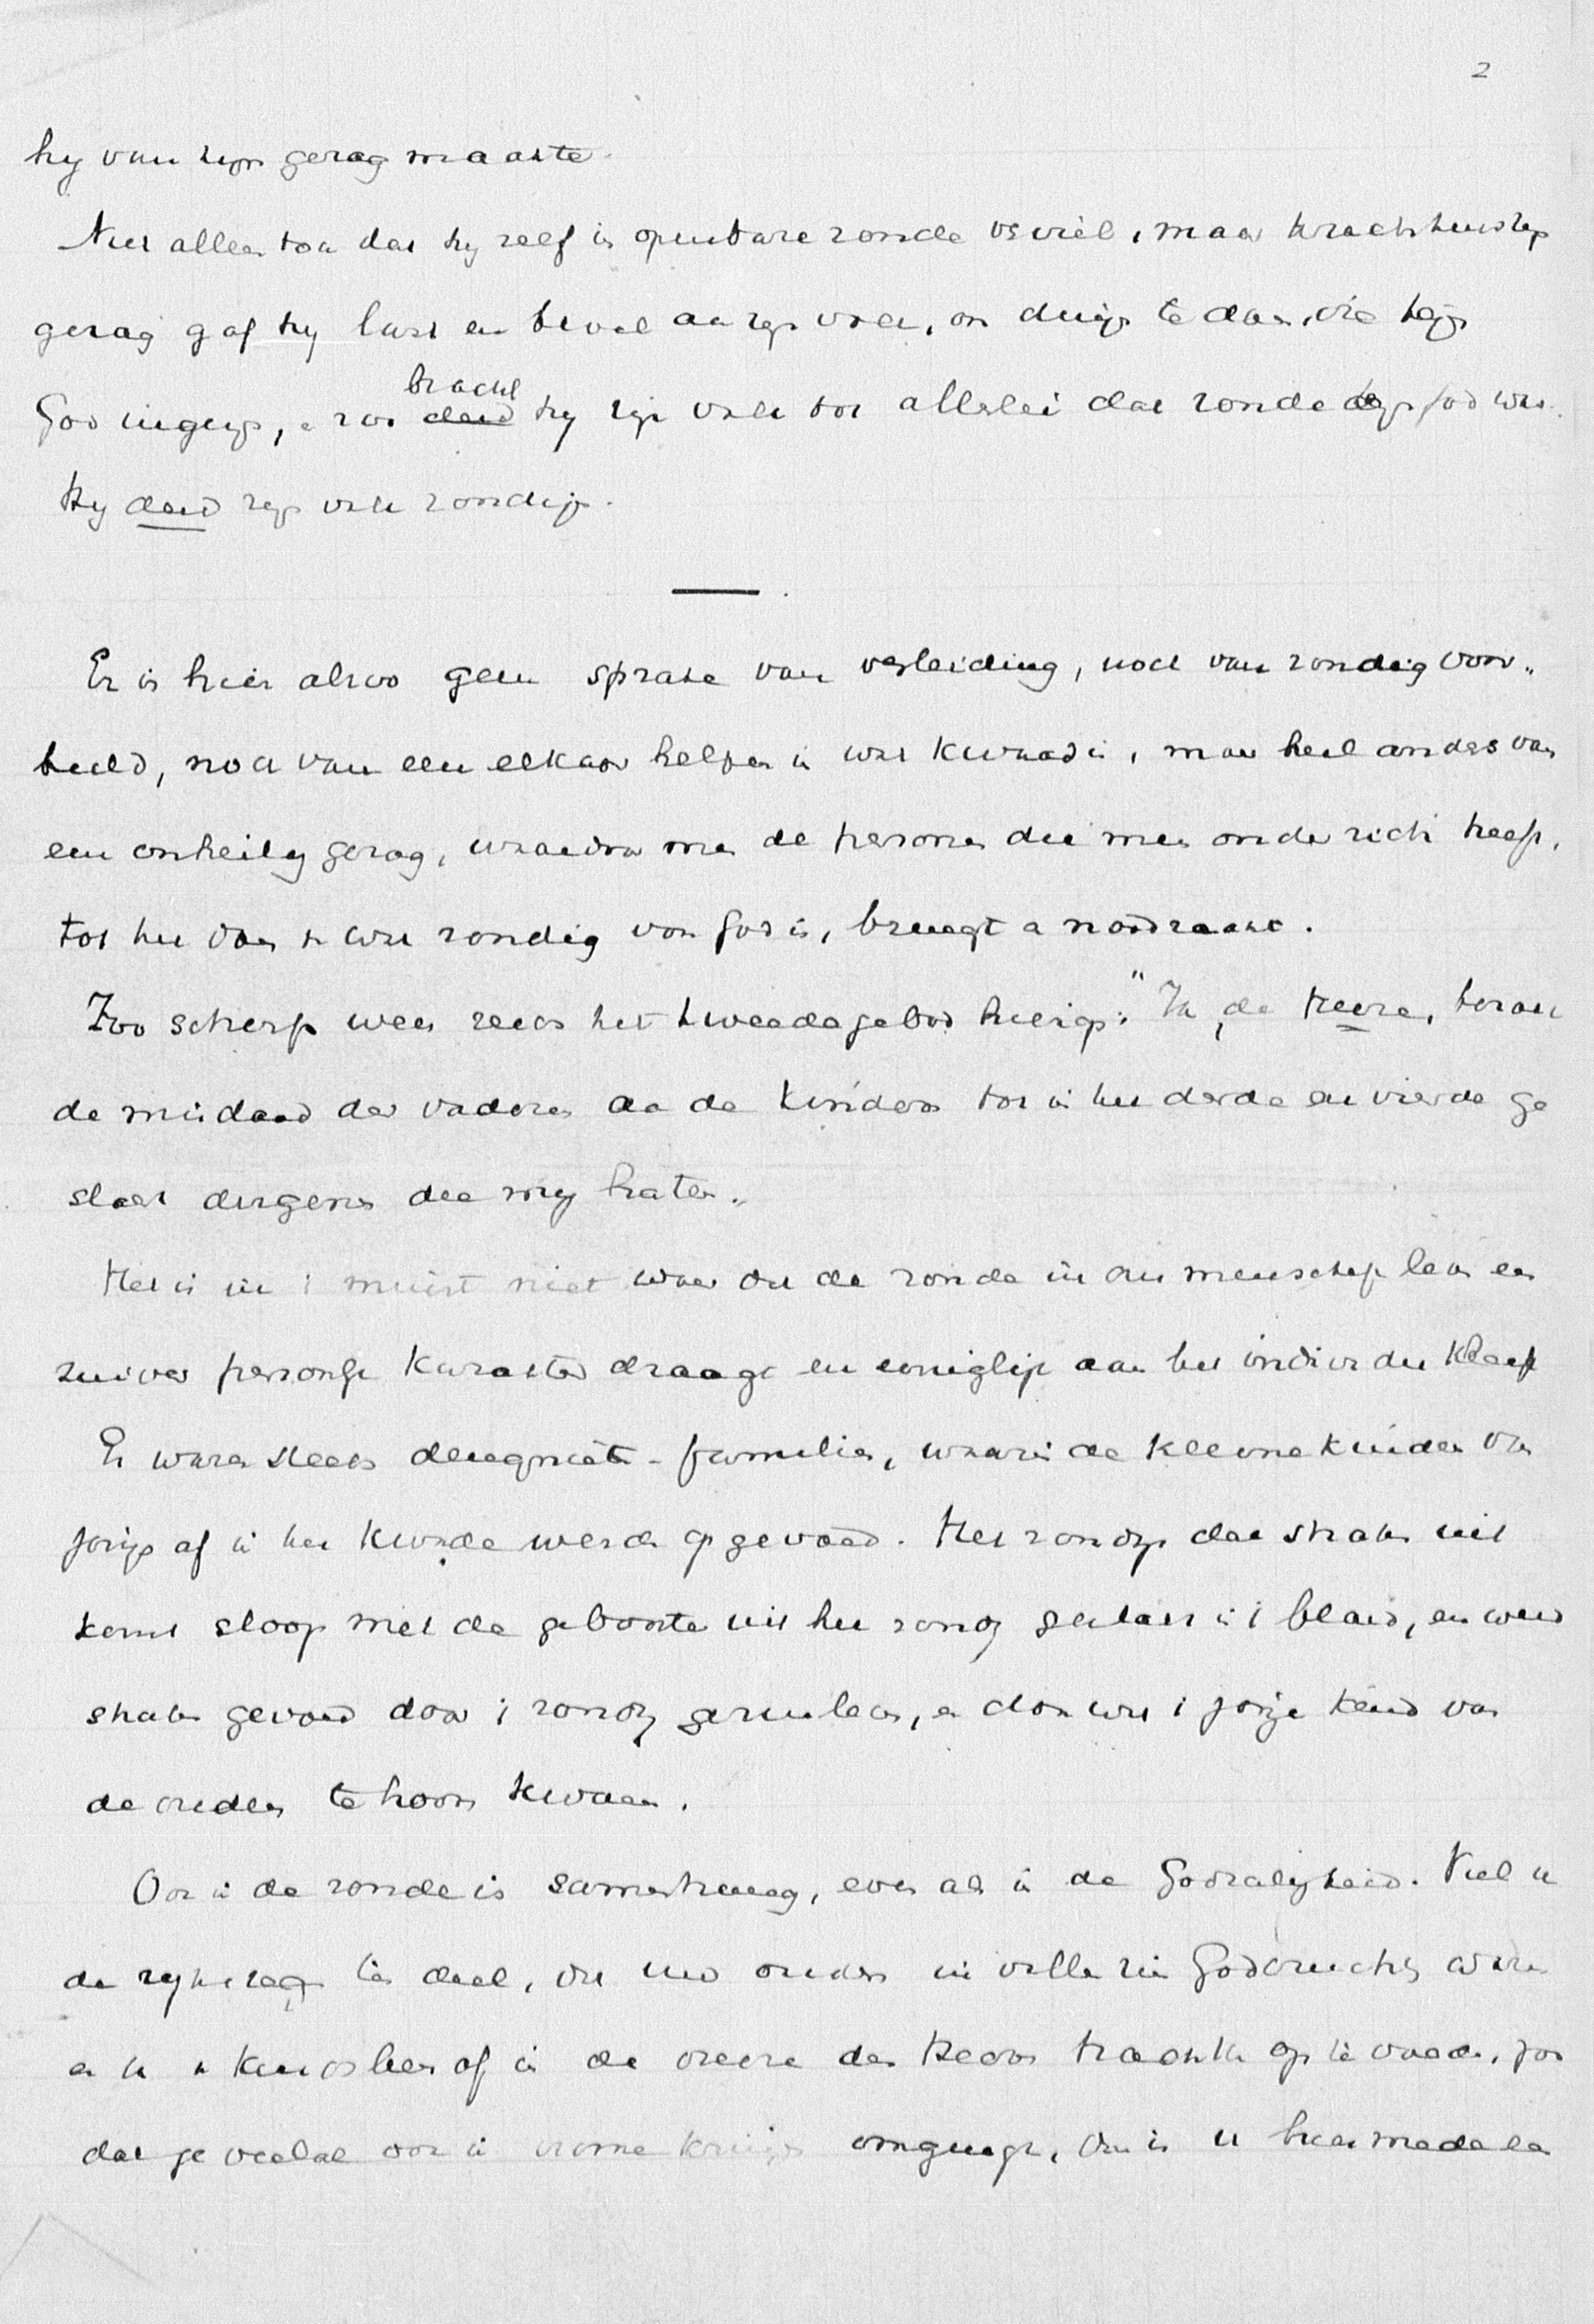 2
hij van zijn gezag maakte.
Niet alleen toch dat hij zelf in openbare zonde verviel, maar krachtens zijn
gezag gaf hij last en bevel aan zijn volk, om dingen te doen, die tegen
God ingingen, en zoo bracht hij zijn volk tot allerlei dat zonde tegen God was.
Hij deed zijn volk zondigen.
Er is hier alzoo geen sprake van verleiding, noch van zondig voor„
beeld, noch van een elkaar helpen in wat kwaad is, maar heel anders van
een onheilig gezag, waardoor men de personen die men onder zich heeft,
tot het doen van wat zondig voor God is, brengt en noodzaakt.
Zoo scherp wees reeds het tweede gebod hierop: "Ik, de Heere, bezoek
de misdaad der vaderen aan de kinderen tot in het derde en vierde ge
slacht dergenen die mij haten„
Het is in 't minst niet waar dat de zonde in ons menschelijk leven een
zuiver persoonlijk karakter draagt en eeniglijk aan het individu kleeft
Er waren steeds deugniets-families, waarin de kleine kinderen van
jongs af in het kwade werden opgevoed. Het zondige dat straks uit
komt sloop met de geboorte uit het zondig geslacht in 't bloed, en werd
straks gevoed door 't zondig gezinsleven, en door wat 't jonge kind van
de ouders te hooren kwam.
Ook in de zonde is samenhang, even als in de Godzaligheid. Viel u
de rijke zegen ten deel, dat uw ouders in vollen zin Godvruchtig waren
en u van kindsbeen af in de vreeze des Heeren trachtten op te voeden, zoo
dat ge veelal ook in vrome kringen omgingt, dan is u hiermede een